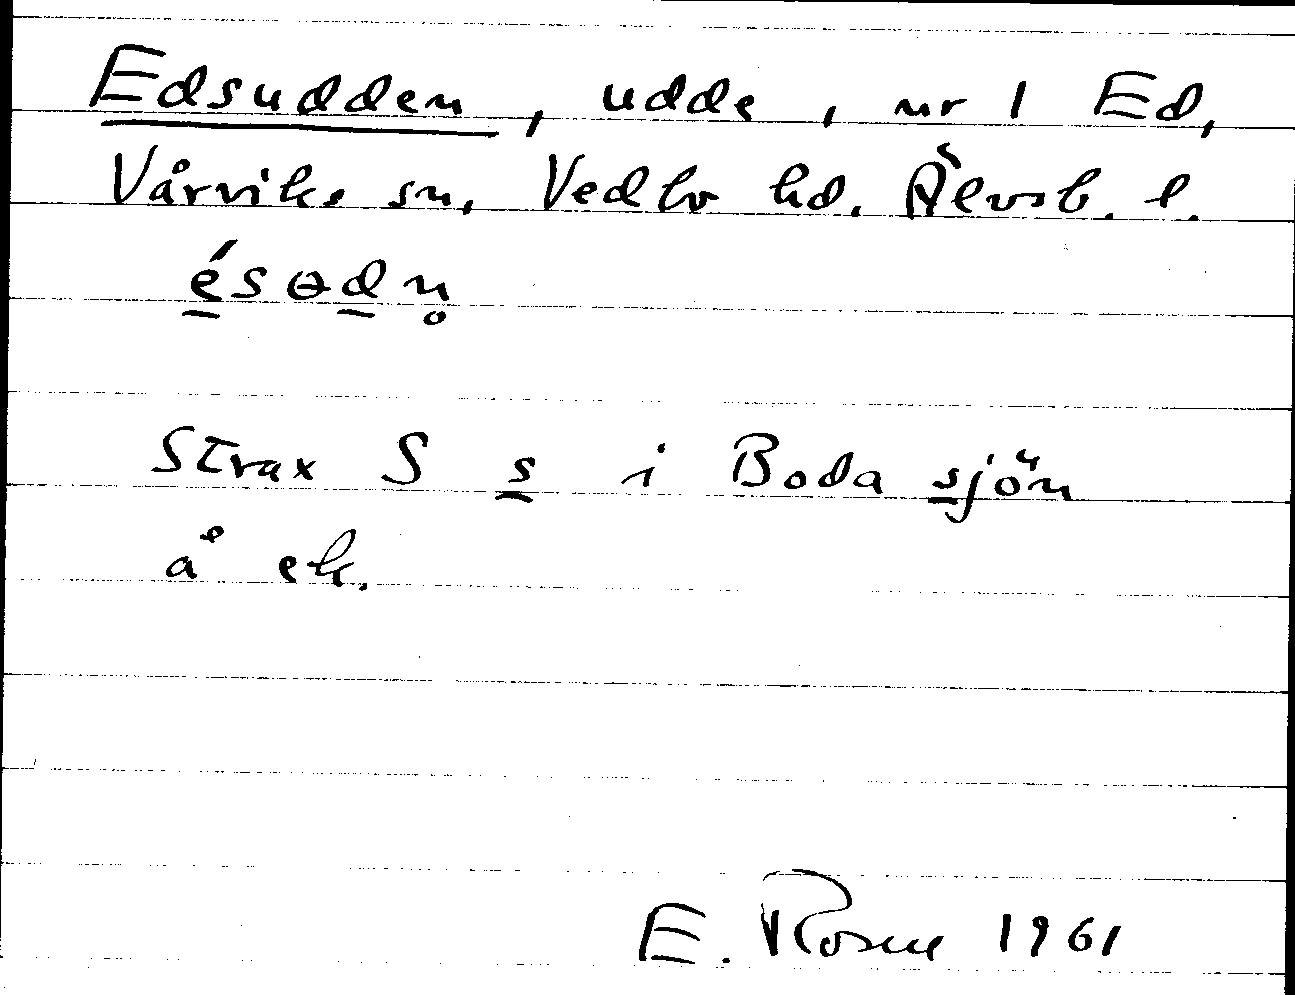 Edsudden, udde, nr 1 Ed,
Vårviks sn, Vedbo hd. Älvsb. l.
ésɵdn̥
Strax S s i Boda sjön
å ek.
E. Rosell 1961